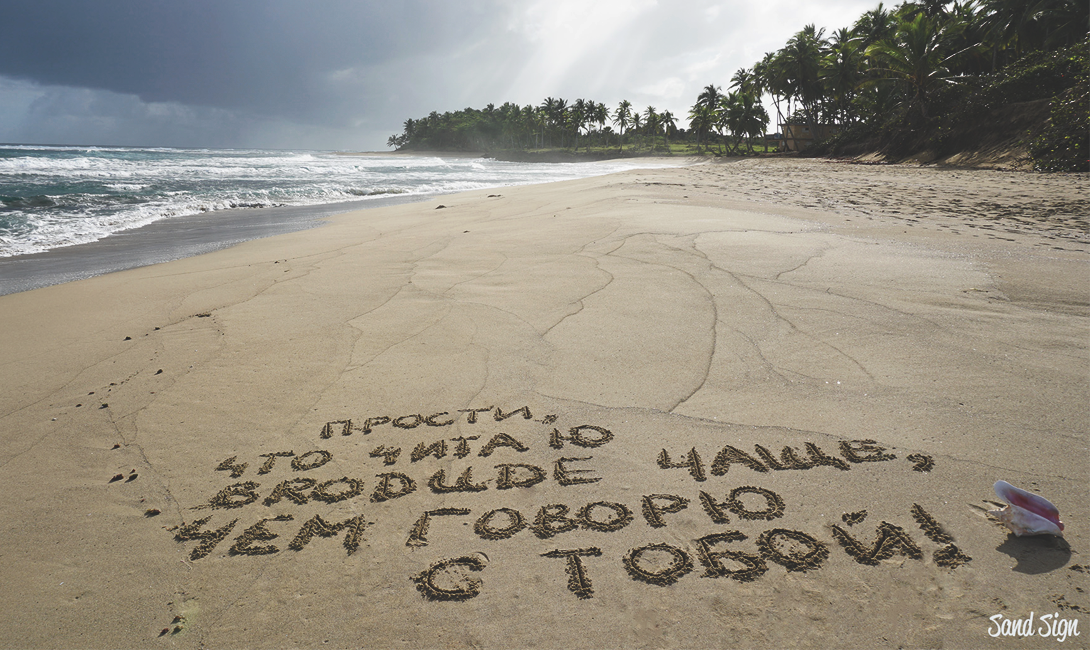 ПРОСТИ,
ЧТО ЧИТАЮ
ЧАЩЕ,
ЧЕМ ГОВОРЮ
С ТОБОЙ!
Sand Sign